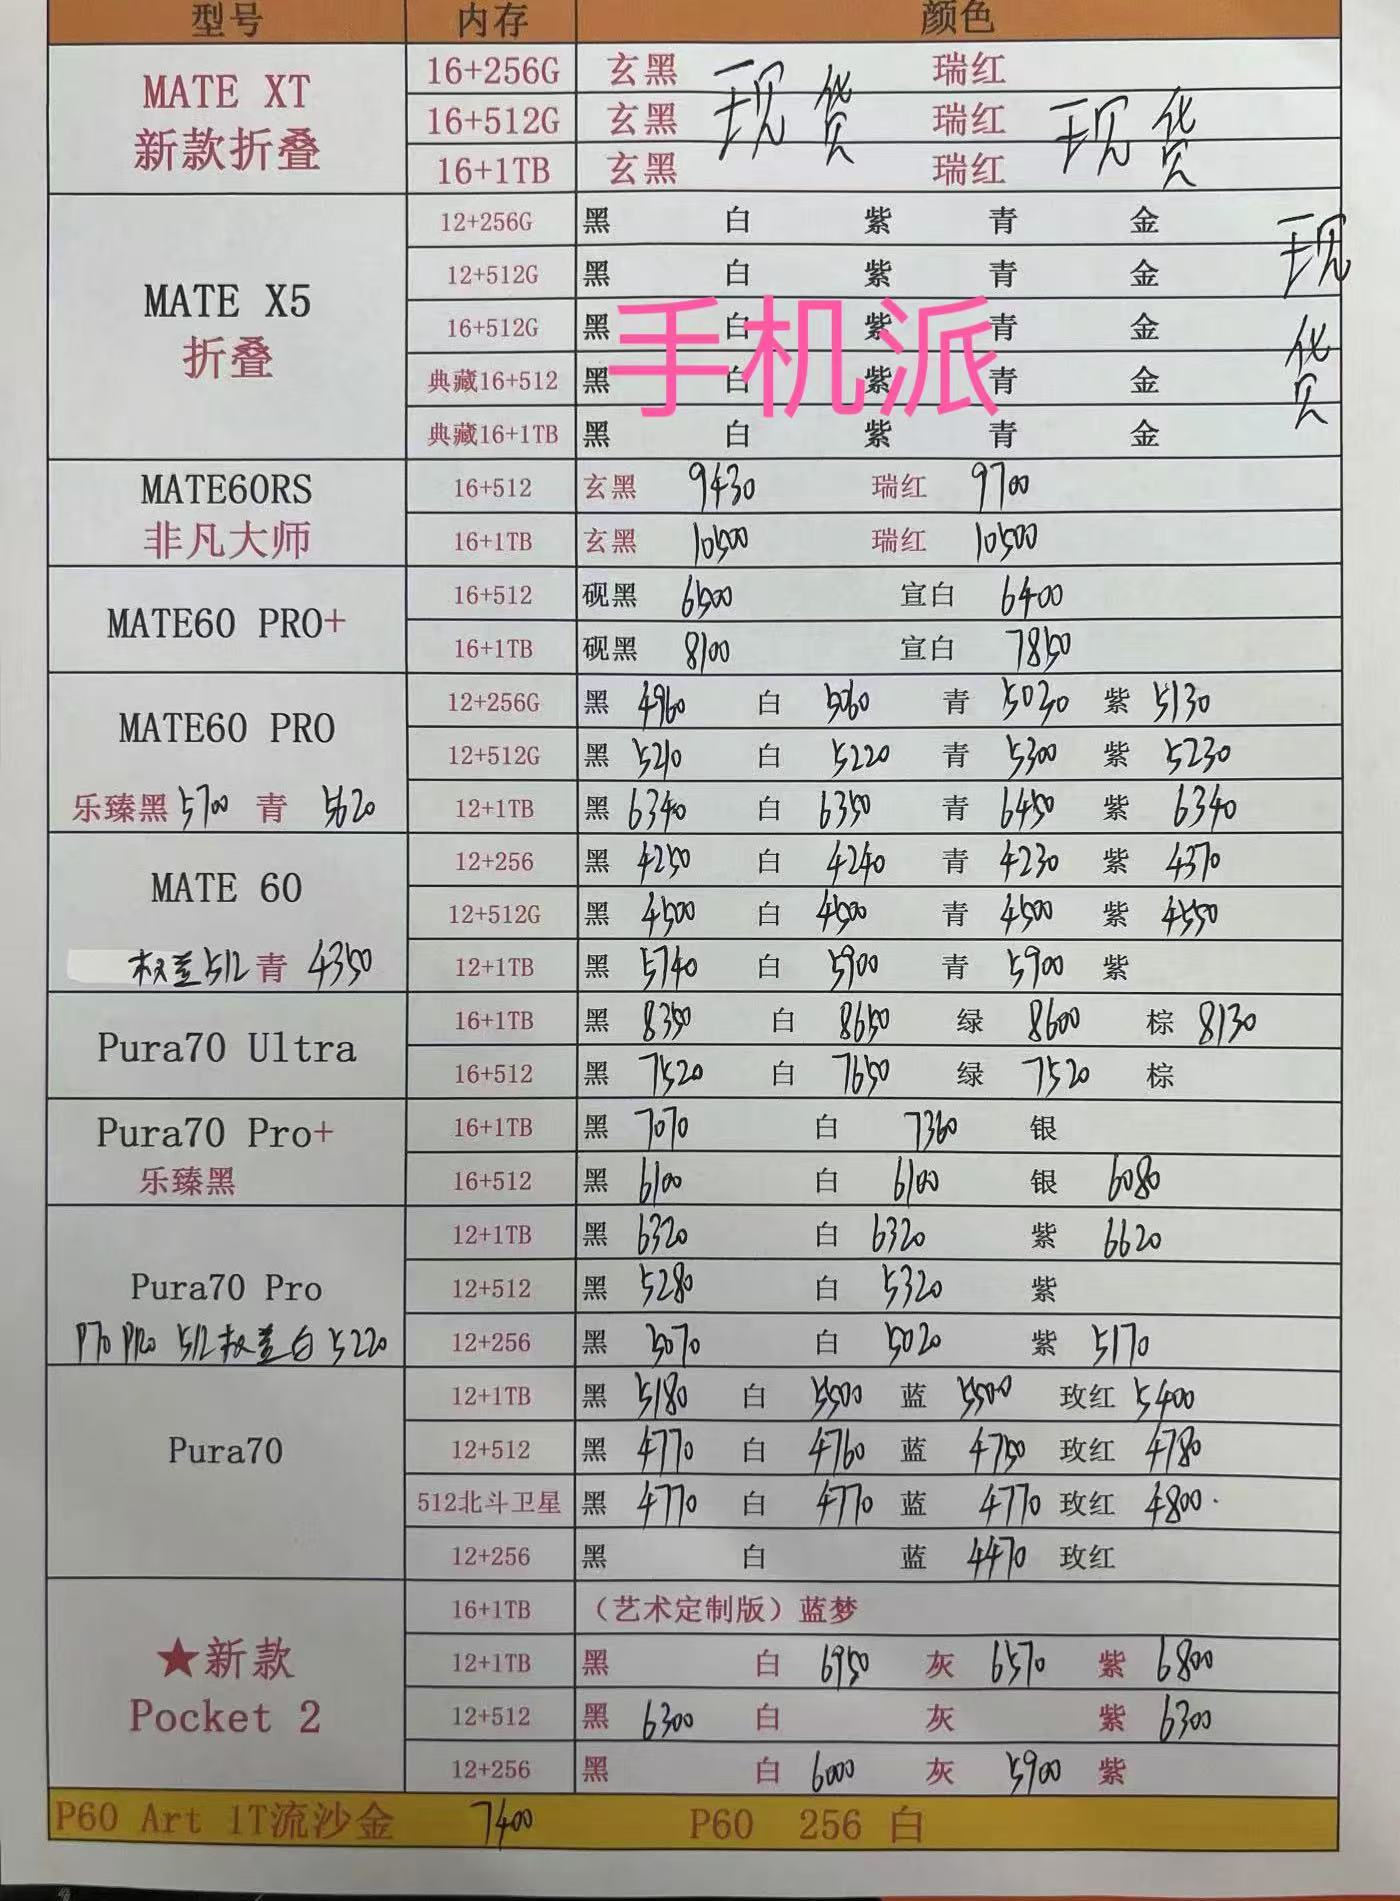 型号 内存 颜色
MATE XT 16+256G 玄黑 现货 瑞红 现货
新款折叠 16+512G 玄黑 瑞红
16+1TB 玄黑 瑞红
12+256G 黑 白 紫 青 金 现货
MATE X5 12+512G 黑 白 紫 青 金
折叠 16+512G 黑 白 紫 青 金
手机派
典藏16+512 黑 白 紫 青 金
典藏16+1TB 黑 白 紫 青 金
MATE60RS 16+512 玄黑 9430 瑞红 9700
非凡大师 16+1TB 玄黑 10500 瑞红 10500
MATE60 PRO+ 16+512 砚黑 6500 宣白 6400
16+1TB 砚黑 8100 宣白 7850
MATE60 PRO 12+256G 黑 4960 白 5060 青 5030 紫 5130
12+512G 黑 5210 白 5220 青 5300 紫 5230
乐臻黑 5700 青 5620 12+1TB 黑 6340 白 6350 青 6450 紫 6340
MATE 60 12+256 黑 4250 白 4240 青 4230 紫 4370
12+512G 黑 4500 白 4500 青 4500 紫 4550
权益512 青 4350 12+1TB 黑 5740 白 5900 青 5900 紫
Pura70 Ultra 16+1TB 黑 8350 白 8650 绿 8600 棕 8130
16+512 黑 7520 白 7650 绿 7520 棕
Pura70 Pro+ 16+1TB 黑 7070 白 7360 银
乐臻黑 16+512 黑 6100 白 6100 银 6080
12+1TB 黑 6320 白 6320 紫 6620
Pura70 Pro 12+512 黑 5280 白 5320 紫
P70 PRO 512权益白 5220 12+256 黑 5070 白 5020 紫 5170
12+1TB 黑 5180 白 5500 蓝 5500 玫红 5400
Pura70 12+512 黑 4770 白 4760 蓝 4750 玫红 4780
512北斗卫星 黑 4770 白 4770 蓝 4770 玫红 4800
12+256 黑 白 蓝 4470 玫红
16+1TB (艺术定制版)蓝梦
★新款 12+1TB 黑 白 6950 灰 6570 紫 6800
Pocket 2 12+512 黑 6300 白 灰 紫 6300
12+256 黑 白 6000 灰 5900 紫
P60 Art 1T流沙金 7400 P60 256 白